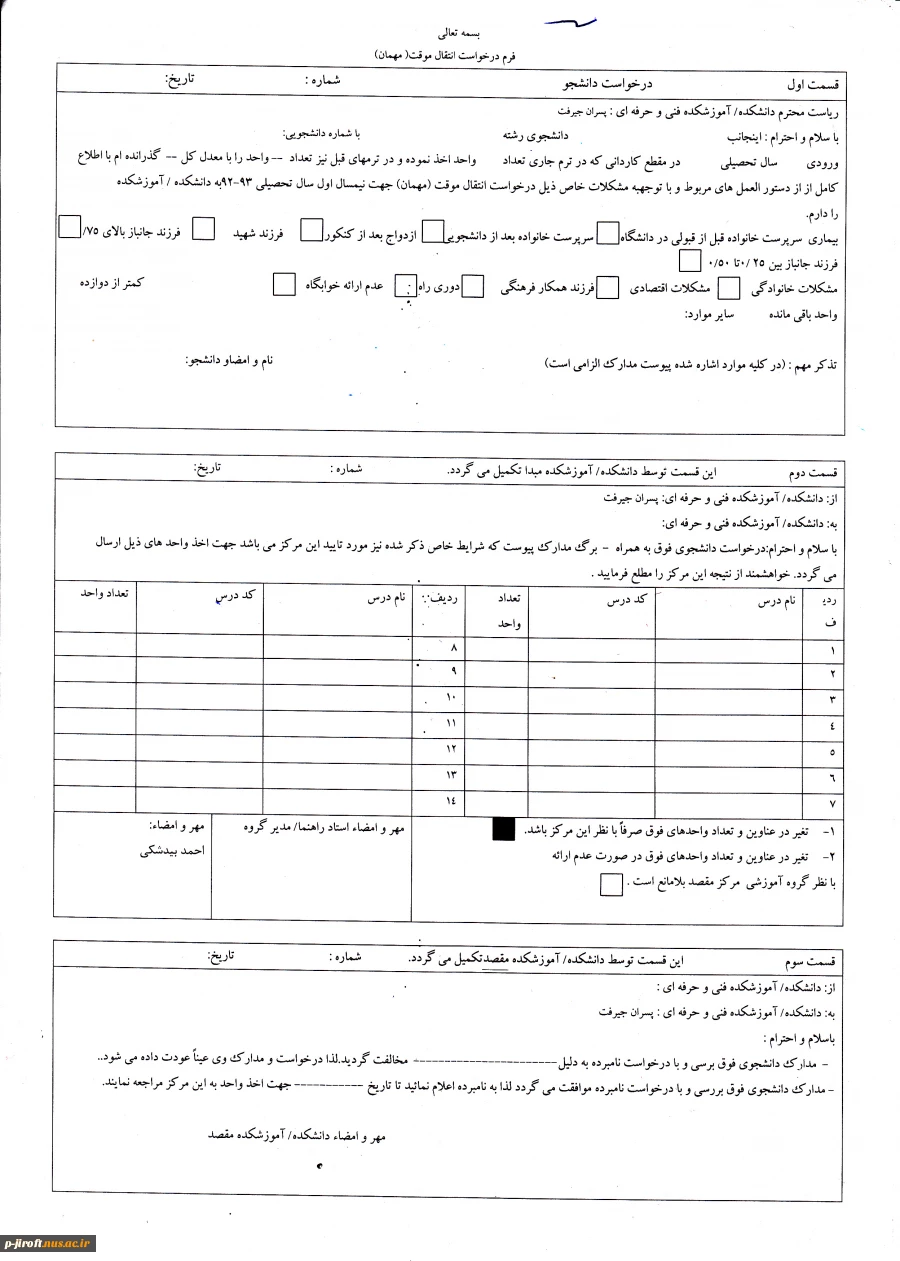 بسمه تعالی
فرم درخواست انتقال موقت( مهمان)
قسمت اول درخواست دانشجو شماره : تاریخ:
ریاست محترم دانشکده/ آموزشکده فنی و حرفه ای : پسران جیرفت
با سلام و احترام : اینجانب دانشجوی رشته با شماره دانشجویی:
ورودی سال تحصیلی در مقطع کاردانی که در ترم جاری تعداد واحد اخذ نموده و در ترمهای قبل نیز تعداد -- واحد را با معدل کل -- گذرانده ام با اطلاع
کامل از از دستور العمل های مربوط و با توجهبه مشکلات خاص ذیل درخواست انتقال موقت (مهمان) جهت نیمسال اول سال تحصیلی ۹۳-۹۲به دانشکده / آموزشکده
را دارم.
بیماری سرپرست خانواده قبل از قبولی در دانشگاه سرپرست خانواده بعد از دانشجویی ازدواج بعد از کنکور فرزند شهید فرزند جانباز بالای ۷۵/
فرزند جانباز بین ۰/۲۵ تا ۰/۵۰
مشکلات خانوادگی مشکلات اقتصادی فرزند همکار فرهنگی دوری راه عدم ارائه خوابگاه کمتر از دوازده
واحد باقی مانده سایر موارد:
تذکر مهم : (در کلیه موارد اشاره شده پیوست مدارک الزامی است) نام و امضاو دانشجو:
قسمت دوم این قسمت توسط دانشکده/ آموزشکده مبدا تکمیل می گردد. شماره : تاریخ:
از: دانشکده/ آموزشکده فنی و حرفه ای: پسران جیرفت
به: دانشکده/ آموزشکده فنی و حرفه ای:
با سلام و احترام:درخواست دانشجوی فوق به همراه - برگ مدارک پیوست که شرایط خاص ذکر شده نیز مورد تایید این مرکز می باشد جهت اخذ واحد های ذیل ارسال
می گردد. خواهشمند از نتیجه این مرکز را مطلع فرمایید .
ردیف نام درس کد درس تعداد واحد ردیف نام درس کد درس تعداد واحد
۱ ۸
۲ ۹
۳ ۱۰
۴ ۱۱
۵ ۱۲
۶ ۱۳
۷ ۱۴
۱- تغیر در عناوین و تعداد واحدهای فوق صرفاً با نظر این مرکز باشد. مهر و امضاء استاد راهنما/ مدیر گروه مهر و امضاء:
۲- تغیر در عناوین و تعداد واحدهای فوق در صورت عدم ارائه احمد بیدشکی
با نظر گروه آموزشی مرکز مقصد بلامانع است .
قسمت سوم این قسمت توسط دانشکده/ آموزشکده مقصدتکمیل می گردد. شماره : تاریخ:
از: دانشکده/ آموزشکده فنی و حرفه ای :
به: دانشکده/ آموزشکده فنی و حرفه ای : پسران جیرفت
باسلام و احترام :
- مدارک دانشجوی فوق برسی و با درخواست نامبرده به دلیل---------------------- مخالفت گردید.لذا درخواست و مدارک وی عیناً عودت داده می شود..
- مدارک دانشجوی فوق بررسی و با درخواست نامبرده موافقت می گردد لذا به نامبرده اعلام نمائید تا تاریخ ----------- جهت اخذ واحد به این مرکز مراجعه نمایند.
مهر و امضاء دانشکده/ آموزشکده مقصد
p-jiroft.nus.ac.ir